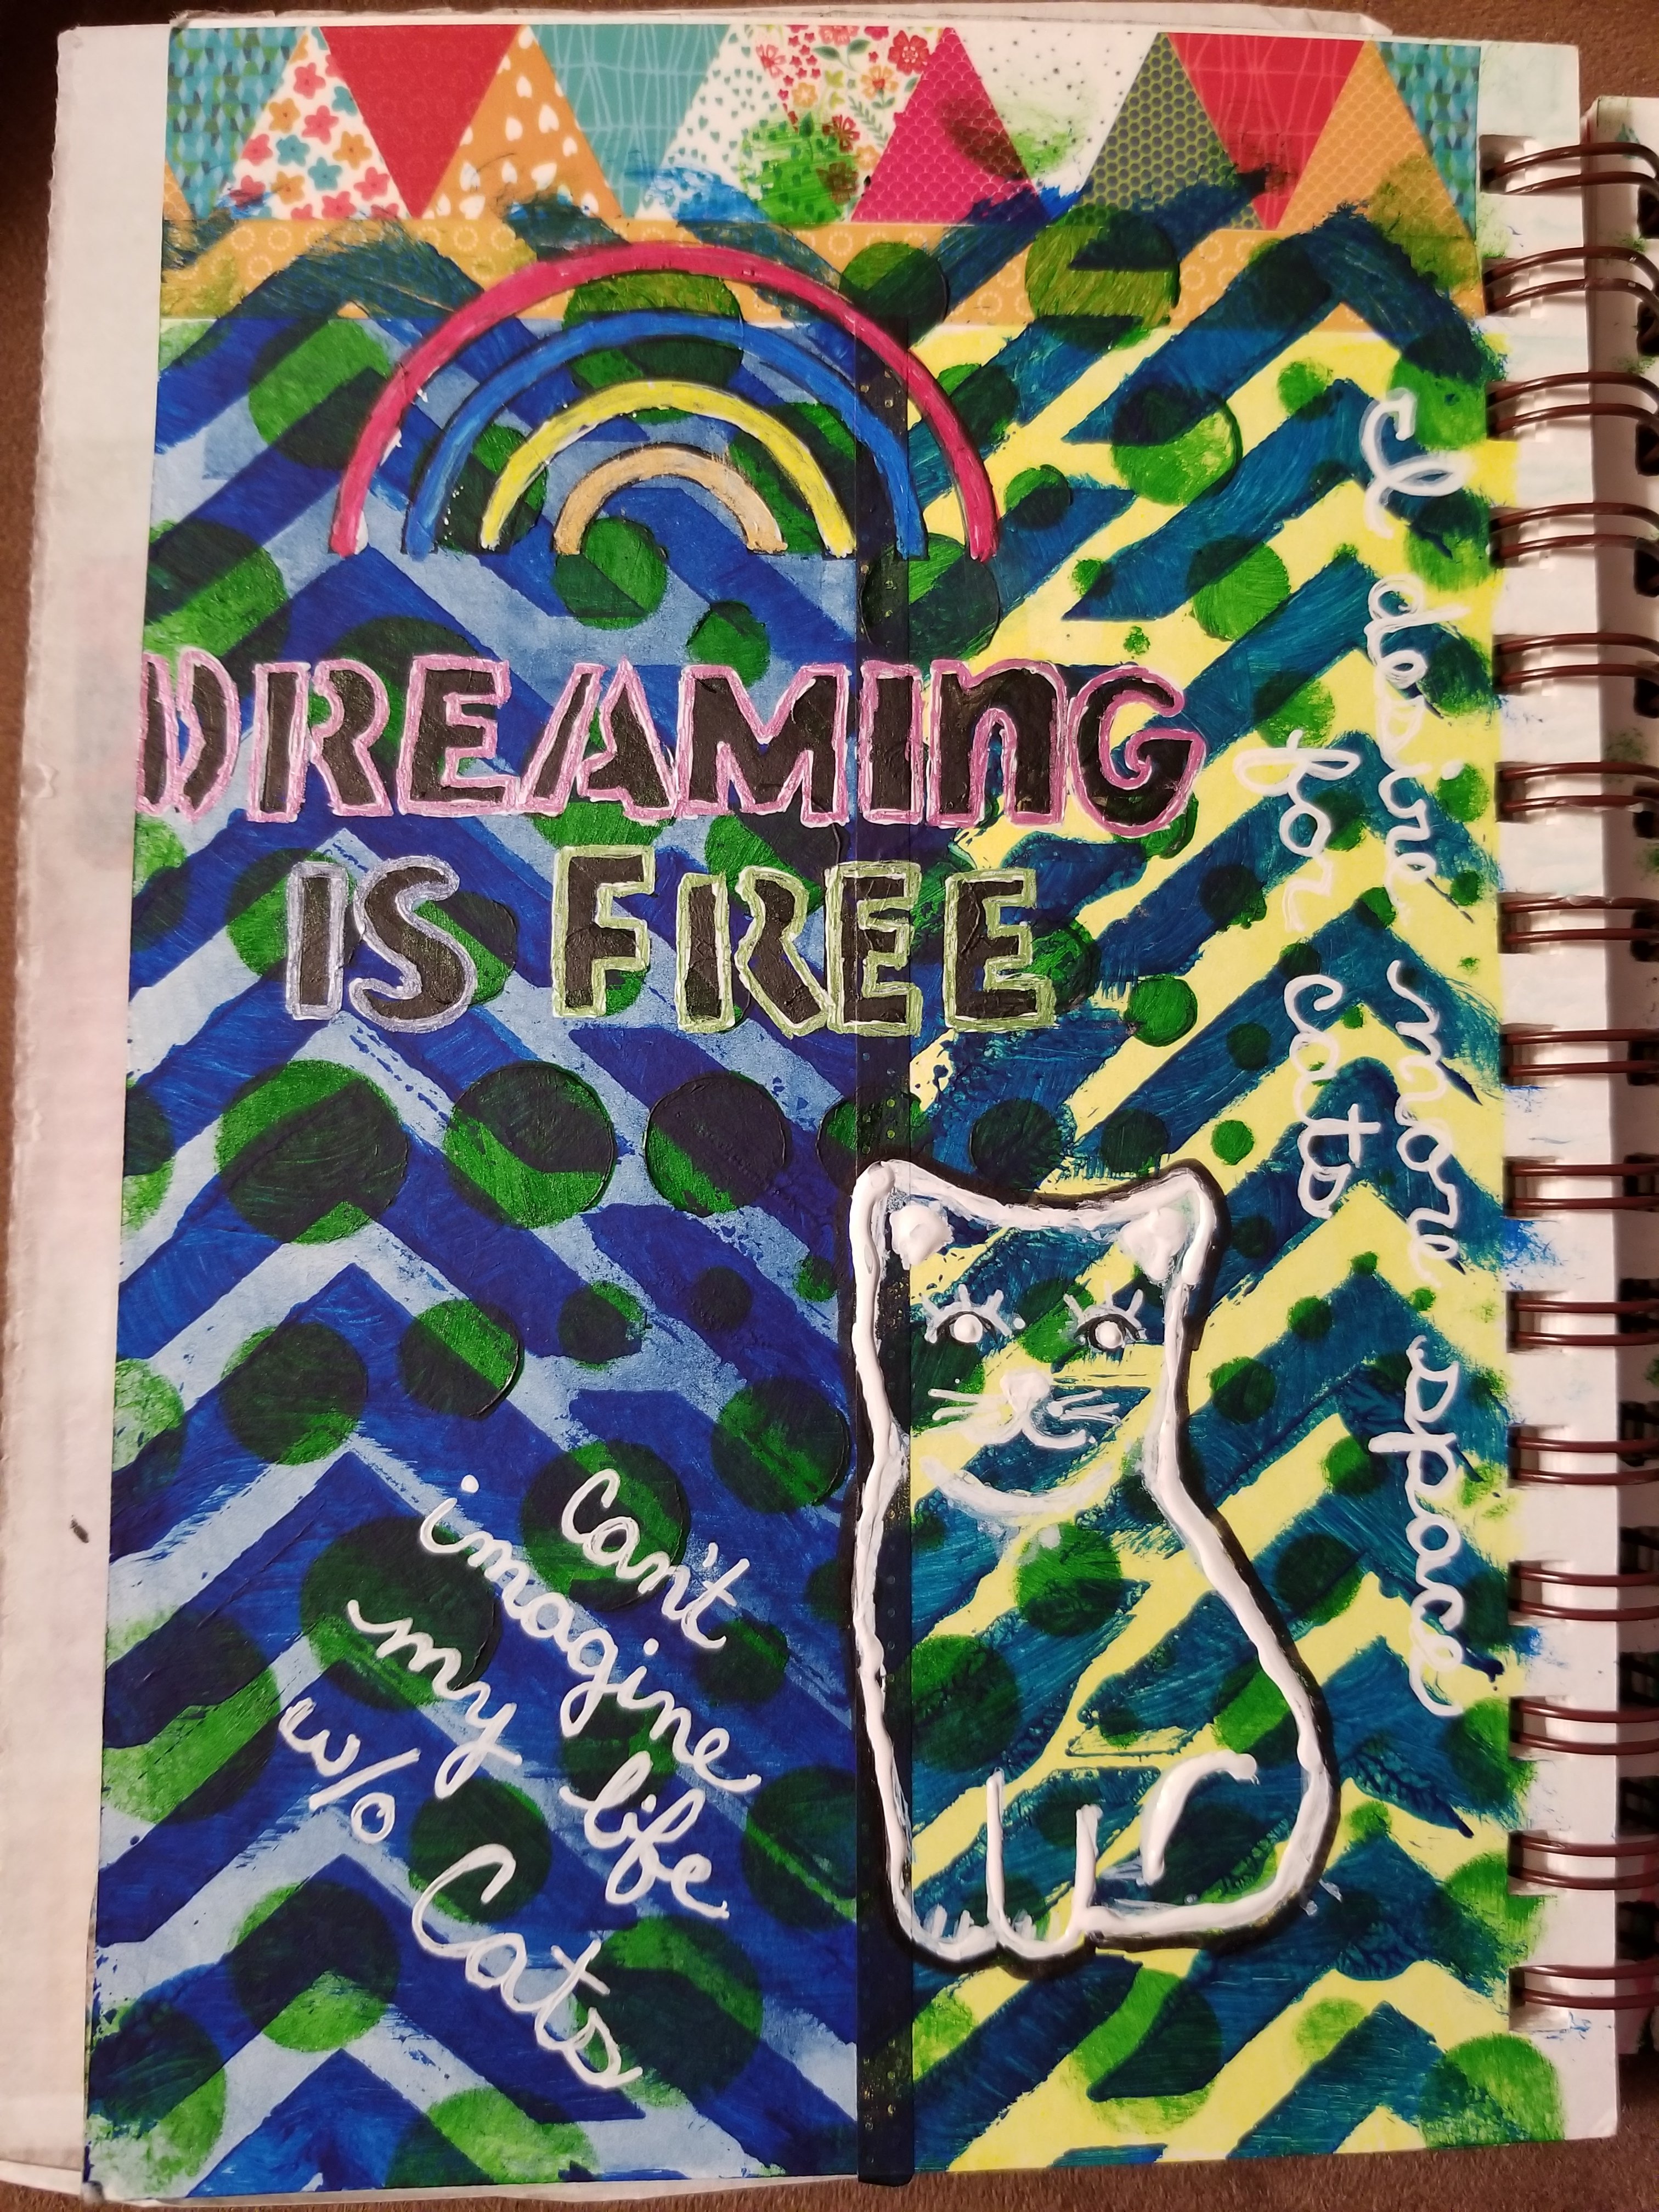 DREAMING
IS FREE
I desire more spaces
for cats
Can't
imagine
my life
w/o Cats